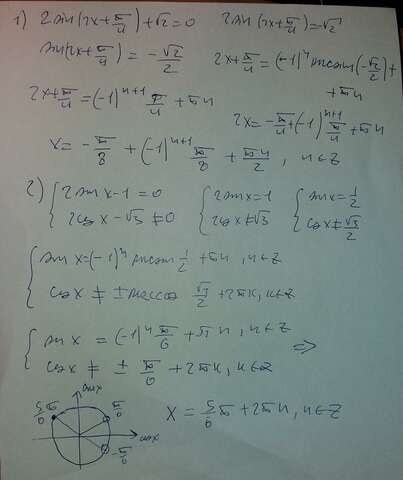 1) 2sin(2x+π/4)+√2=0    2sin(2x+π/4)=-√2
sin(2x+π/4) = -√2/2    2x+π/4=(-1)ⁿ arcsin(-√2/2)+
+πn
2x+π/4=(-1)ⁿ⁺¹ π/4 + πn    2x=-π/4+(-1)ⁿ⁺¹ π/4+πn
x = -π/8 + (-1)ⁿ⁺¹ π/8 + πn/2 , n∈Z
2) { 2sin x-1=0    { 2sin x=1    { sin x=1/2
2cos x-√3≠0    2cos x≠√3    cos x≠√3/2
{ sin x=(-1)ⁿ arcsin 1/2 +πn , n∈Z
cos x ≠ ±arccos √3/2 +2πk, k∈Z
{ sin x = (-1)ⁿ π/6 + πn, n∈Z
=>
cos x ≠ ± π/6 +2πk, k∈Z
sin x
5π/6    π/6    x = 5/6 π +2πn, n∈Z
cos x
-π/6